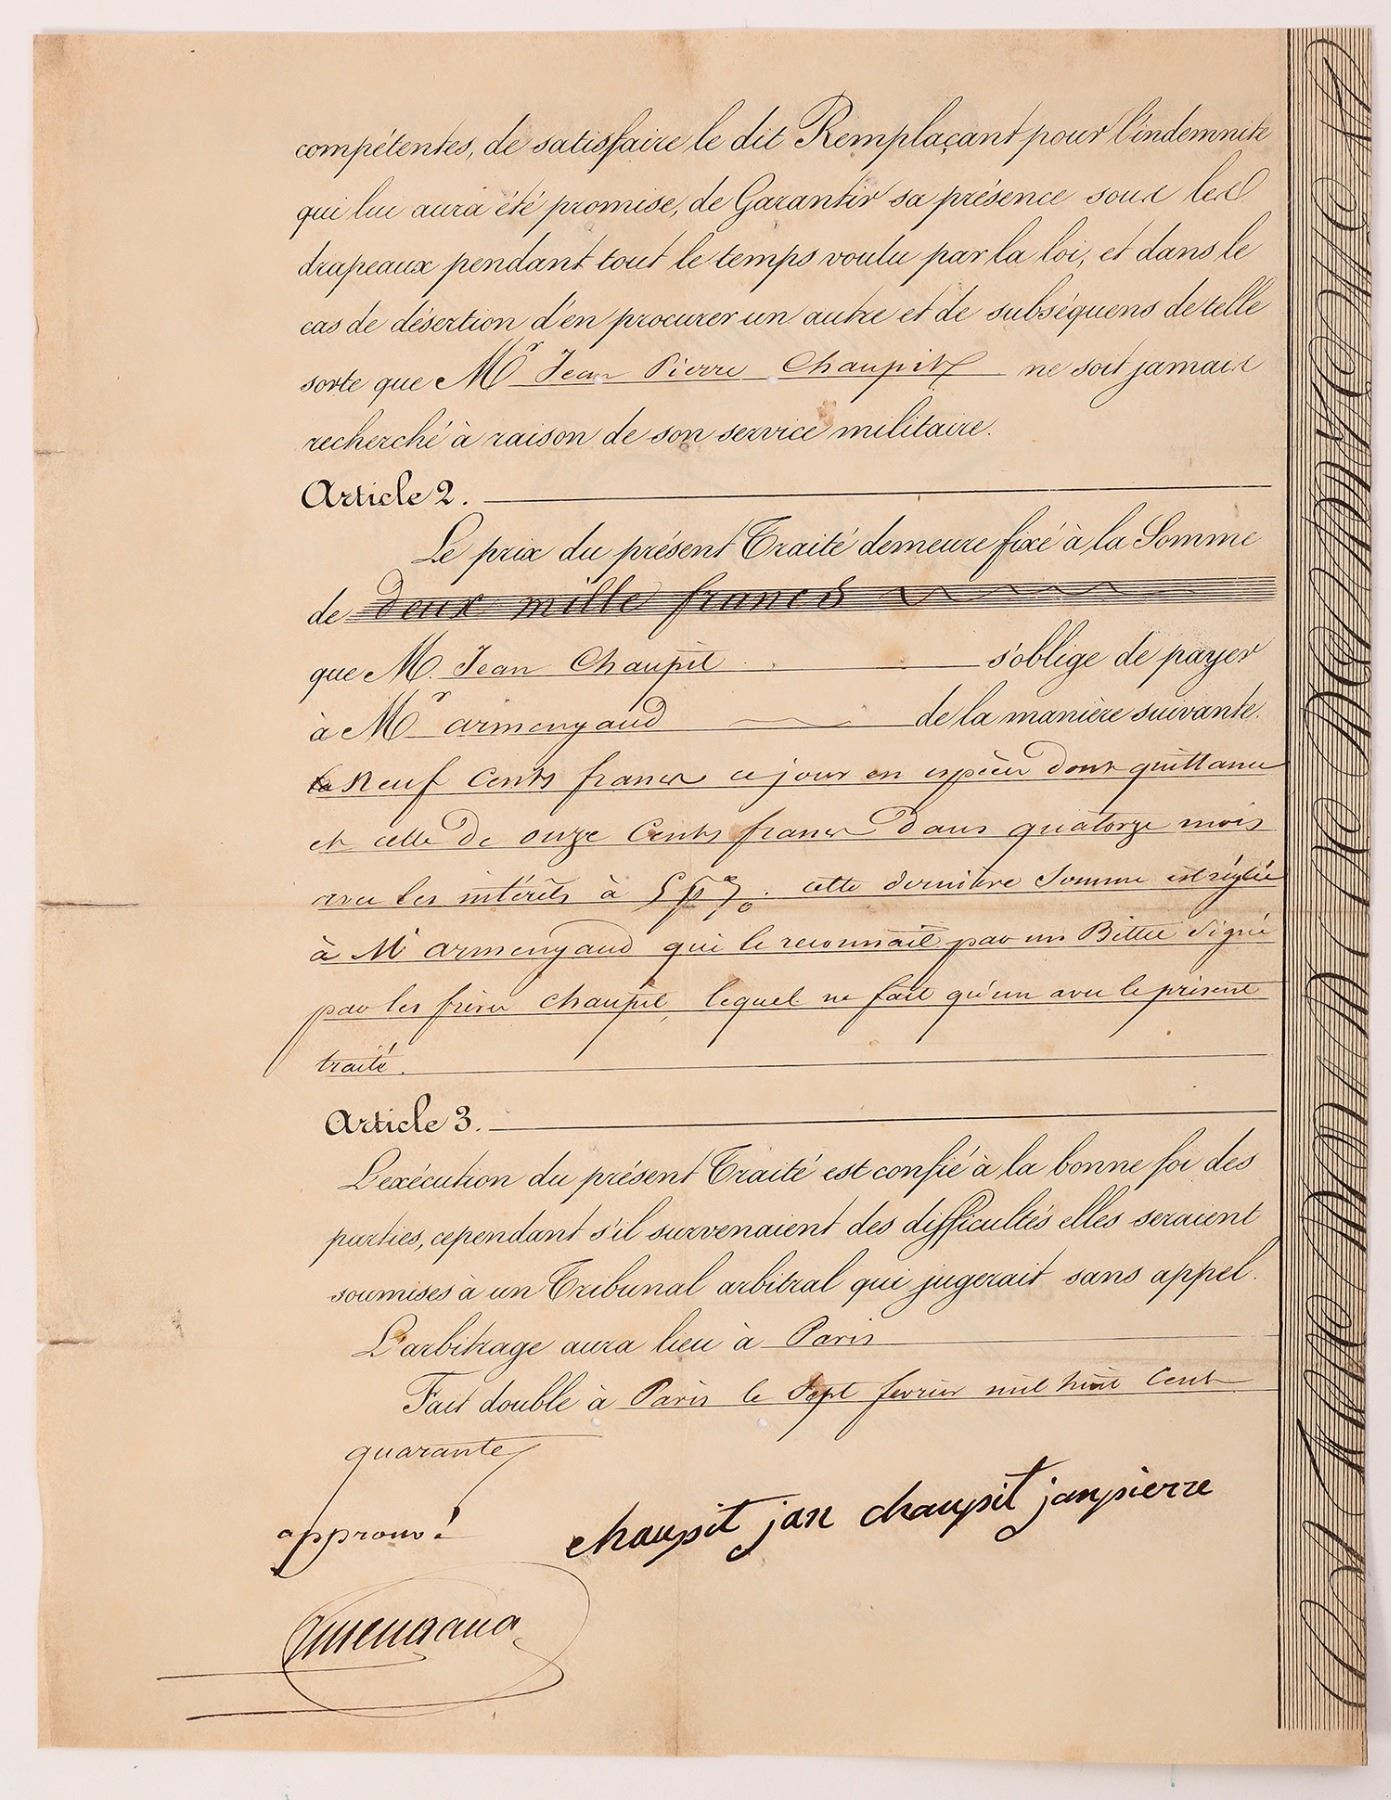 compétentes, de satisfaire le dit Remplaçant pour l'indemnité
qui lui aura été promise, de Garantir sa présence sous les
drapeaux pendant tout le temps voulu par la loi, et dans le
cas de désertion d'en procurer un autre et de subséquens de telle
sorte que Mr Jean Pierre Chaupit ne soit jamais
recherché à raison de son service militaire.
Article 2.
Le prix du présent Traité demeure fixé à la Somme
de deux mille francs
que M. Jean Chaupit s'oblige de payer
à Mr armengaud de la manière suivante.
Neuf Cents francs ce jour en espèces dont quittance
et celle de onze Cents francs dans quatorze mois
avec les intérêts à 5 p % . cette dernière somme est réglée
à Mr armengaud qui le reconnait par un Billet signé
par les frères Chaupit, lequel ne fait qu'un avec le présent
traité.
Article 3.
L'exécution du présent Traité est confié à la bonne foi des
parties, cependant s'il survenaient des difficultés elles seraient
soumises à un Tribunal arbitral qui jugerait sans appel.
L'arbitrage aura lieu à Paris
Fait double à Paris le sept fevrier mil huit Cent
quarante
approuvé
chaupit jan chaupit janpierre
armengaud